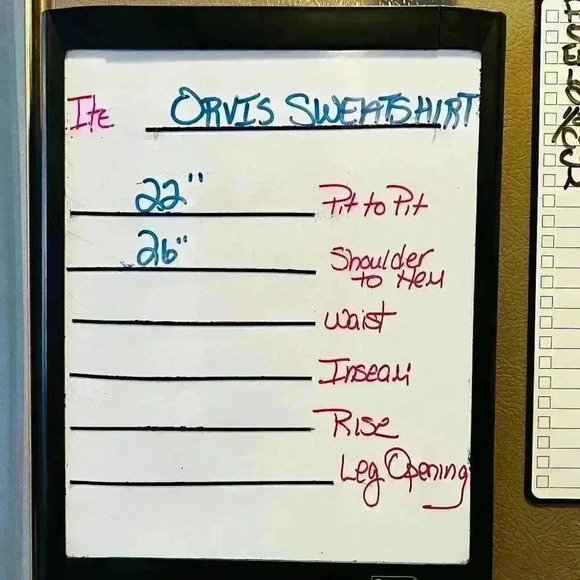 Ite ORVIS SWEATSHIRT
22" Pit to Pit
26" Shoulder
to Hem
Waist
Inseam
Rise
Leg Opening